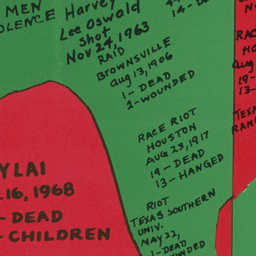 MEN
OLENCE
Harvey
Lee Oswald
Shot
Nov 24, 1963
RAID
BROWNSVILLE
Aug 13, 1906
1- DEAD
2- WOUNDED
RACE RIOT
HOUSTON
AUG 23, 1917
19- DEAD
13- HANGED
RIOT
TEXAS SOUTHERN
UNIV.
MAY 22,
1- DEAD
YLAI
16, 1968
- DEAD
- CHILDREN
14-
RAC
HO
Aug
19-
13-
TEX
RAN